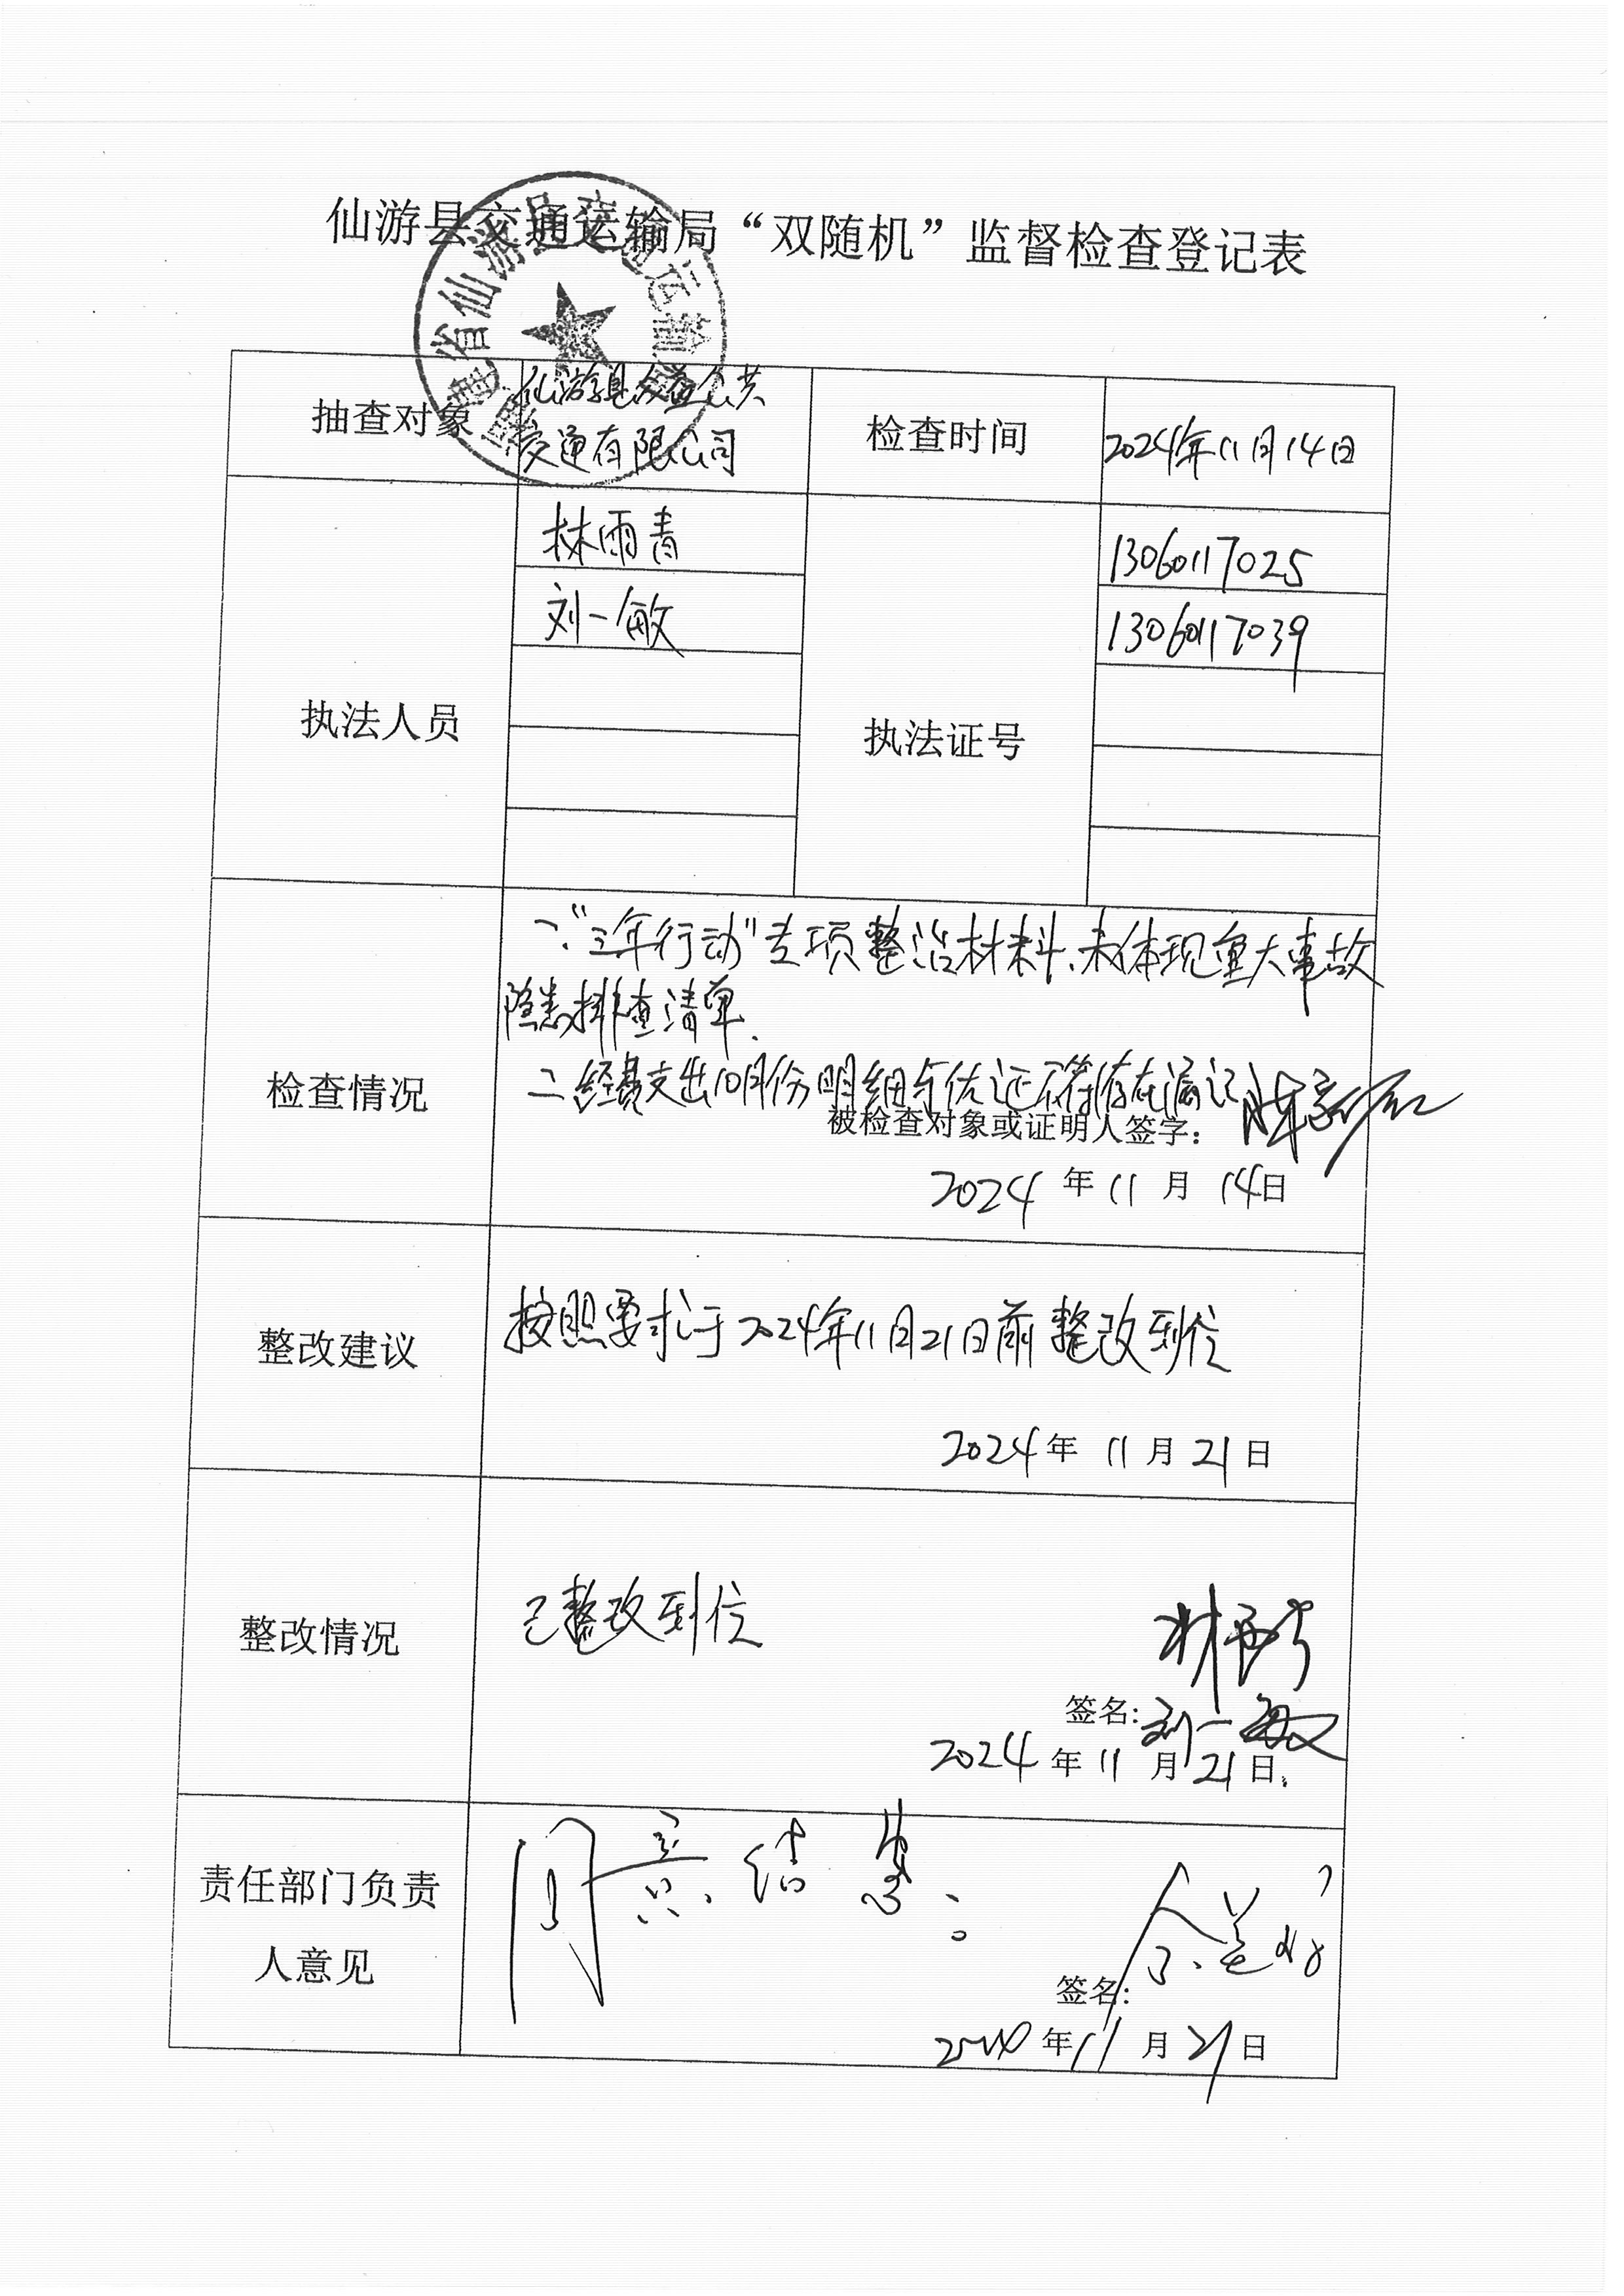 仙游县交通运输局“双随机”监督检查登记表
福建省仙游县交通运输局
抽查对象
仙游县公共
交通有限公司
检查时间
2024年11月14日
执法人员
林雨青
刘一敏
执法证号
13060117025
13060117039
检查情况
一、“三年行动”专项整治材料、未体现重大事故
隐患排查清单.
二、经费支出10月份明细与佐证不符存在漏记
被检查对象或证明人签字:
2024年11月14日
整改建议
按照要求于2024年11月21日前整改到位
2024年11月21日
整改情况
已整改到位
林雨青
签名:刘一敏
2024年11月21日.
责任部门负责
人意见
同意结案。
签名:
2024年11月21日